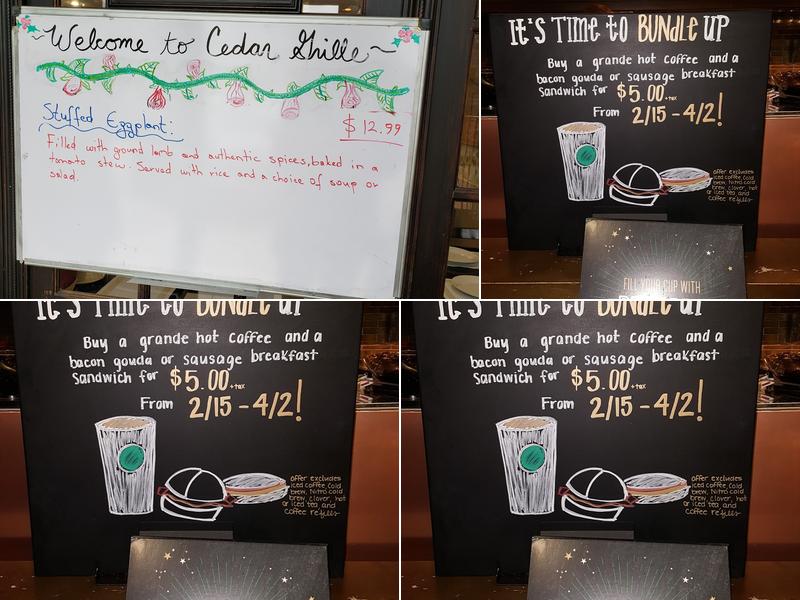 Welcome to Cedar Grille
Stuffed Eggplant:
$12.99
Filled with ground lamb and authentic spices, baked in a
tomato stew. Served with rice and a choice of soup or
salad.
It's Time to BUNDLE UP
Buy a grande hot coffee and a
bacon gouda or sausage breakfast
Sandwich for $5.00 +tax
From 2/15 - 4/2!
offer excludes
iced coffee, Cold
brew, Nitro cold
brew, clover, hot
or iced tea, and
coffee refills
FILL YOUR CUP WITH
It's Time to BUNDLE UP
Buy a grande hot coffee and a
bacon gouda or sausage breakfast
Sandwich for $5.00 +tax
From 2/15 - 4/2!
offer excludes
iced coffee, Cold
brew, Nitro cold
brew, clover, hot
or iced tea, and
coffee refills
It's Time to BUNDLE UP
Buy a grande hot coffee and a
bacon gouda or sausage breakfast
Sandwich for $5.00 +tax
From 2/15 - 4/2!
offer excludes
iced coffee, Cold
brew, Nitro cold
brew, clover, hot
or iced tea, and
coffee refills